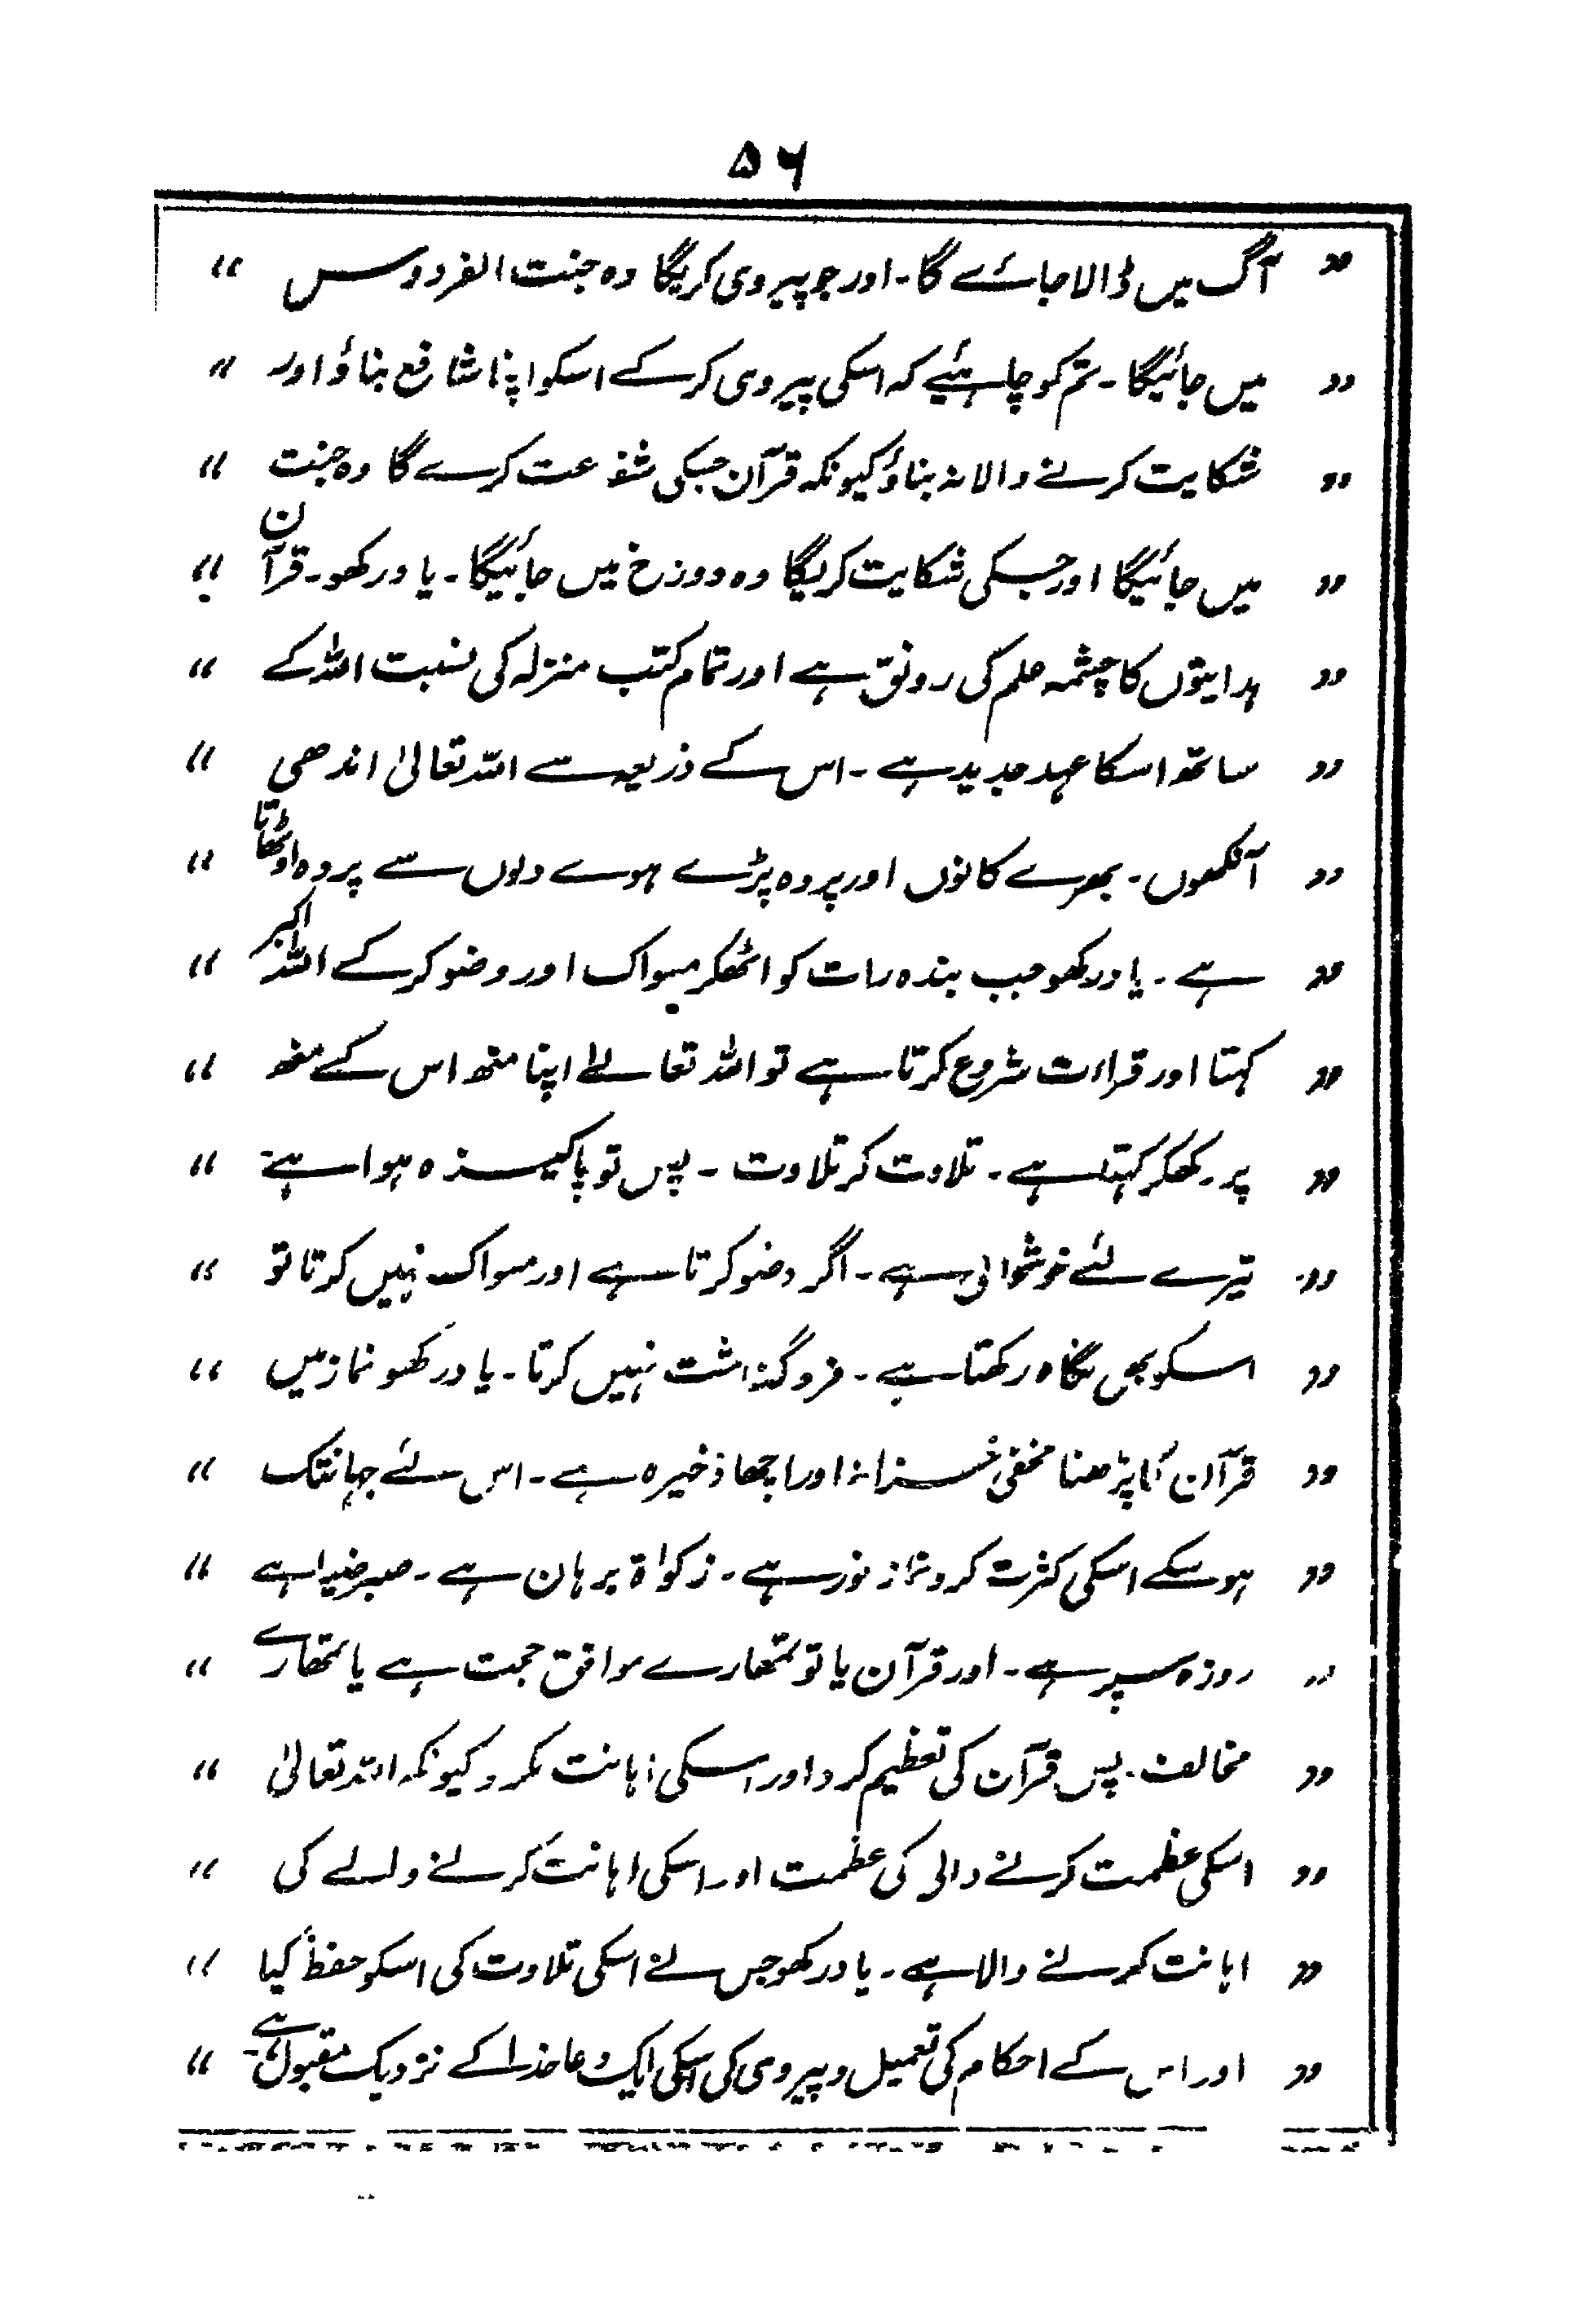 ۵۶
” آگ میں ڈالا جائے گا۔ اور جو پیروی کریگا وہ جنت الفردوس “
” میں جائیگا۔ تم کو چاہئیے کہ اسکی پیروی کرکے اسکو اپنا شافع بناؤ اور “
” شکایت کرنے والا نہ بناؤ کیونکہ قرآن جسکی شفاعت کرے گا وہ جنت “
” میں جائیگا اور جسکی شکایت کریگا وہ دوزخ میں جائیگا۔ یاد رکھو۔ قرآن “
” ہدایتوں کا چشمہ علم کی رونق ہے اور تمام کتب منزلہ کی نسبت اللہ کے “
” ساتھ اسکا عہد جدید ہے۔ اس کے ذریعہ سے اللہ تعالیٰ اندھی “
” آنکھوں۔ بھرے کانوں اور پردہ پڑے ہوے دلوں سے پردہ اوٹھاتا “
” ہے۔ یاد رکھو جب بندہ رات کو اٹھکر مسواک اور وضو کرکے اللہ اکبر “
” کہتا اور قراءت شروع کرتا ہے تو اللہ تعالےٰ اپنا منھ اس کے منھ “
” پر رکھکر کہتا ہے۔ تلاوت کر تلاوت ۔ پس تو پاکیزہ ہوا ہے “
” تیرے لئے خوشحالی ہے۔ اگر وضو کرتا ہے اور مسواک نہیں کرتا تو “
” اسکو بھی نگاہ رکھتا ہے۔ فروگذاشت نہیں کرتا۔ یاد رکھو نماز میں “
” قرآن کا پڑھنا مخفی خزانہ اور اچھا ذخیرہ ہے۔ اس لئے جہانتک “
” ہوسکے اسکی کثرت کرو نماز نور ہے۔ زکواۃ برہان ہے۔ صبر ضیا ہے “
” روزہ سپر ہے۔ اور قرآن یا تو تمھارے موافق حجت ہے یا تمھارے “
” مخالف۔ پس قرآن کی تعظیم کرو اور اسکی اہانت نکرو کیونکہ اللہ تعالیٰ “
” اسکی عظمت کرنے والی کی عظمت اور اسکی اہانت کرنے والے کی “
” اہانت کرنے والا ہے۔ یاد رکھو جس نے اسکی تلاوت کی اسکو حفظ کیا “
” اور اس کے احکام کی تعمیل و پیروی کی اسکی ایک دعا خدا کے نزدیک مقبول ہے۔ “